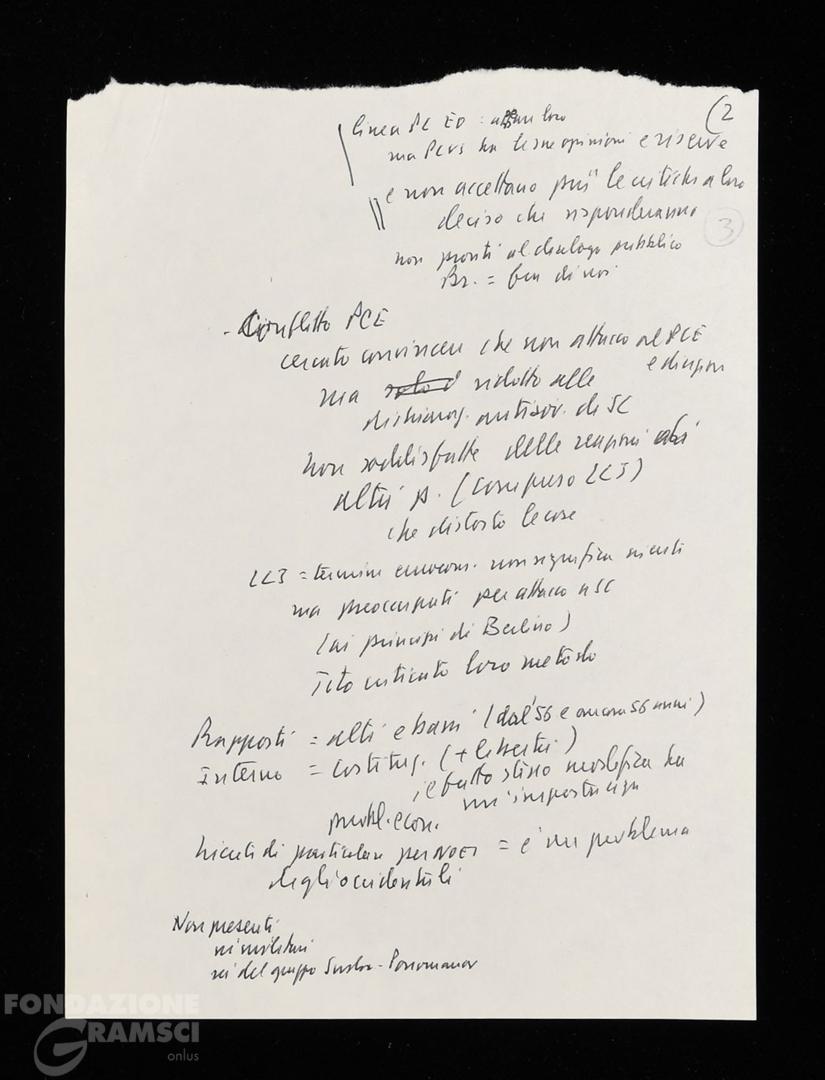 (2
linea PC EO : affare loro
ma PCUS ha le sue opinioni e riserve
e non accettano più le critiche a loro
deciso che risponderanno
3
non pronti al dialogo pubblico
Br. = ben di noi
- Conflitto PCE
cercato convincere che non attacco al PCE
ma solo è ridotto alle
dichiaraz. antisov. di SC
non soddisfatte delle reazioni
altri p. (compreso LCJ)
che distorto le cose
LCJ = termine eurocom. non significa niente
ma preoccupati per attacco a SC
(ai principi di Berlino)
Tito criticato loro metodo
Rapporti = alti e bassi (dal '56 e ancora 56 anni)
Interno = costituz. (+ libertà)
il fatto stesso modifica ha
un'importanza
probl. econ.
Niente di particolare per NOEI = è un problema
degli occidentali
Non presenti
né militari
né del gruppo Suslov - Ponomariov
FONDAZIONE
GRAMSCI
onlus